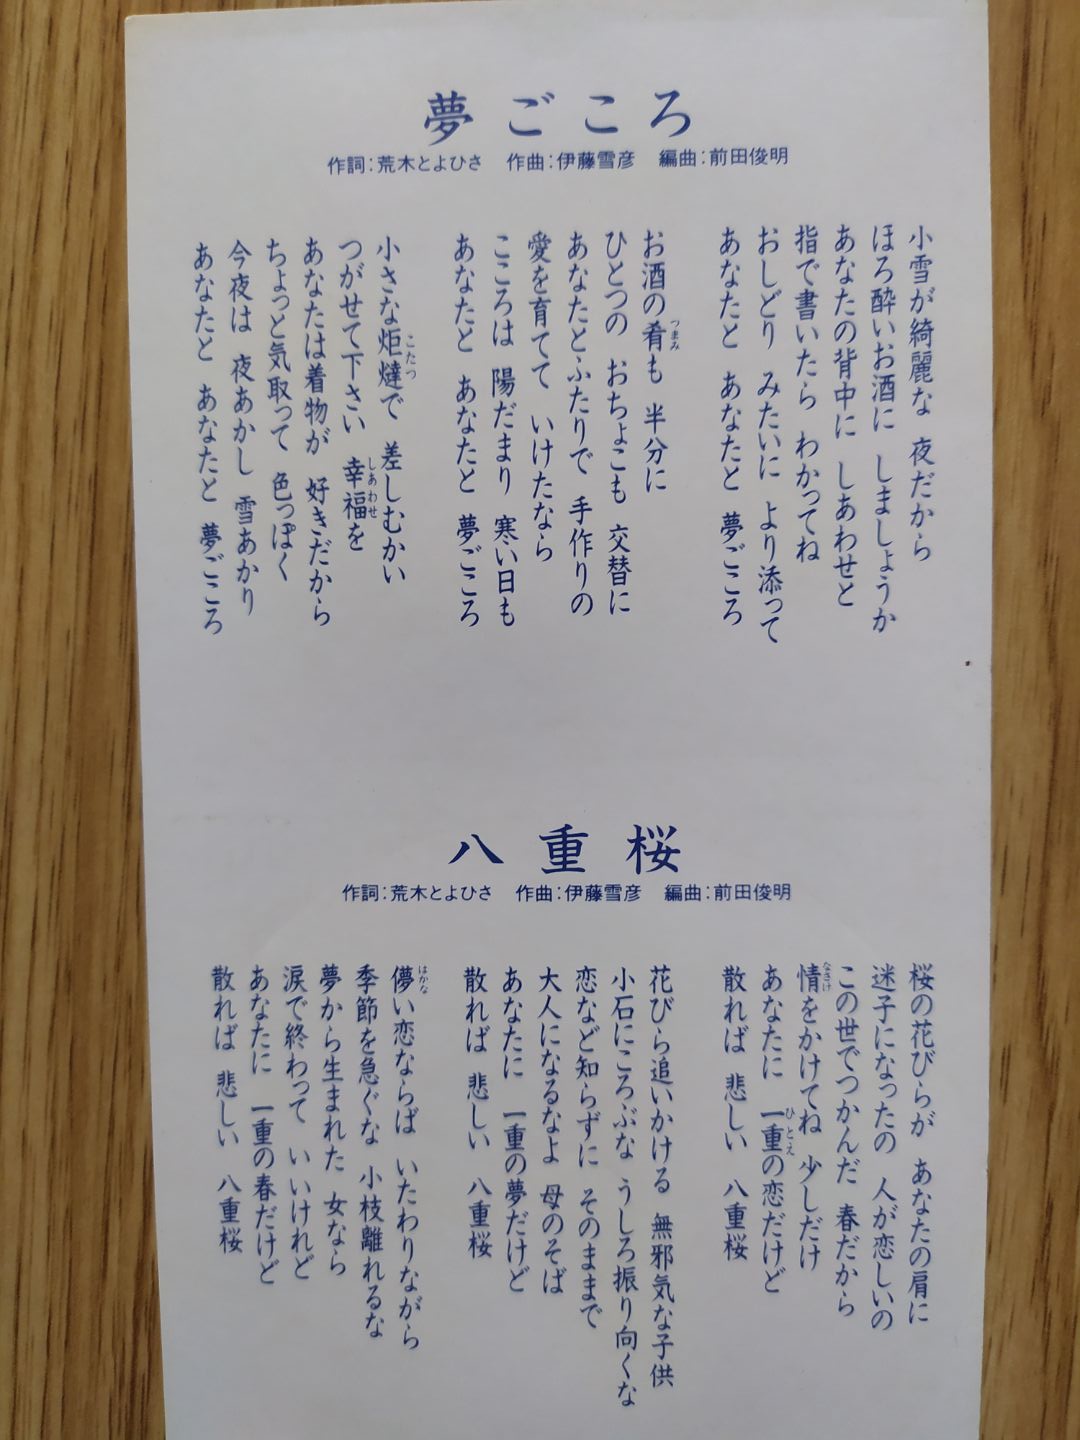 夢ごころ
作詞：荒木とよひさ　作曲：伊藤雪彦　編曲：前田俊明
小雪が綺麗な　夜だから
ほろ酔いお酒に　しましょうか
あなたの背中に　しあわせと
指で書いたら　わかってね
おしどり　みたいに　より添って
あなたと　あなたと　夢ごころ
お酒の肴も　半分に
つまみ
ひとつの　おちょこも　交替に
あなたとふたりで　手作りの
愛を育てて　いけたなら
こころは　陽だまり　寒い日も
あなたと　あなたと　夢ごころ
小さな炬燵で　差しむかい
こたつ
つがせて下さい　幸福を
しあわせ
あなたは着物が　好きだから
ちょっと気取って　色っぽく
今夜は　夜あかし　雪あかり
あなたと　あなたと　夢ごころ
八重桜
作詞：荒木とよひさ　作曲：伊藤雪彦　編曲：前田俊明
桜の花びらが　あなたの肩に
迷子になったの　人が恋しいの
この世でつかんだ　春だから
情をかけてね　少しだけ
なさけ
あなたに　一重の恋だけど
ひとえ
散れば　悲しい　八重桜
花びら追いかける　無邪気な子供
小石にころぶな　うしろ振り向くな
恋など知らずに　そのままで
大人になるなよ　母のそば
あなたに　一重の夢だけど
散れば　悲しい　八重桜
儚い恋ならば　いたわりながら
はかな
季節を急ぐな　小枝離れるな
夢から生まれた　女なら
涙で終わって　いいけれど
あなたに　一重の春だけど
散れば　悲しい　八重桜